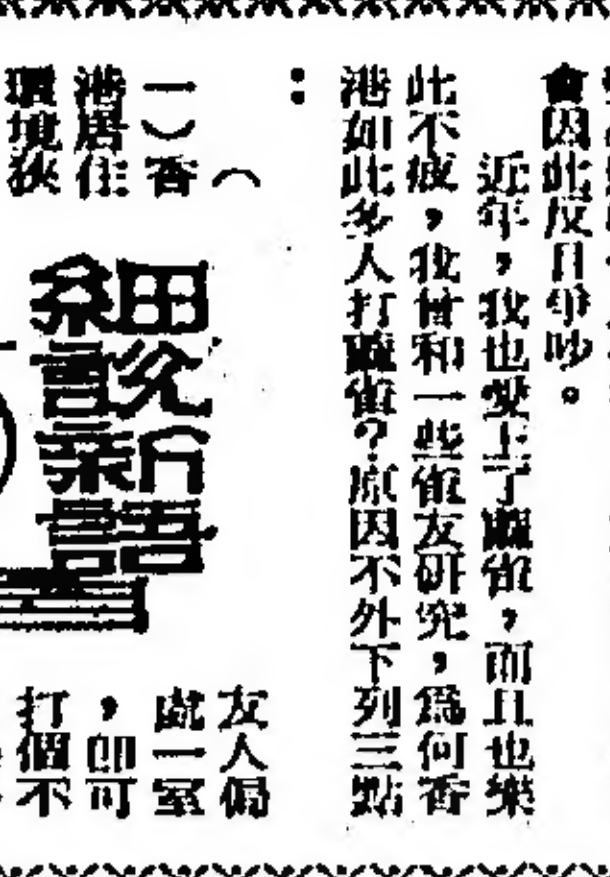 會因此反目爭吵。
近年，我也愛上了麻雀，而且也樂
此不疲，我曾和一些雀友研究，爲何香
港如此多人打麻雀？原因不外下列三點
：
（
一）香
港居住
環境狹
細說新語
友人侷
處一室
，即可
打個不